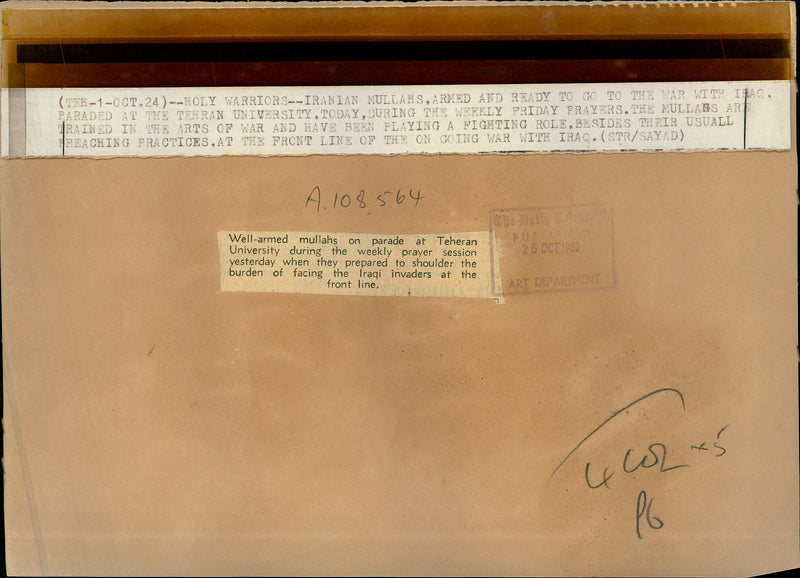 (TEH-1-OCT,24)--HOLY WARRIORS--IRANIAN MULLAHS,ARMED AND READY TO GO TO THE WAR WITH IRAQ.
PARADED AT THE TEHRAN UNIVERSITY,TODAY,DURING THE WEEKLY FRIDAY PRAYERS.THE MULLAHS ARE
TRAINED IN THE ARTS OF WAR AND HAVE BEEN PLAYING A FIGHTING ROLE,BESIDES THEIR USUALL
PREACHING PRACTICES,AT THE FRONT LINE OF THE ON GOING WAR WITH IRAQ.(STR/SAYAD)
A.108564
Well-armed mullahs on parade at Teheran
University during the weekly prayer session
yesterday when they prepared to shoulder the
burden of facing the Iraqi invaders at the
front line.
The Daily Telegraph
PUBLISHED
25 OCT 1980
ART DEPARTMENT
4 COL x 5
P6